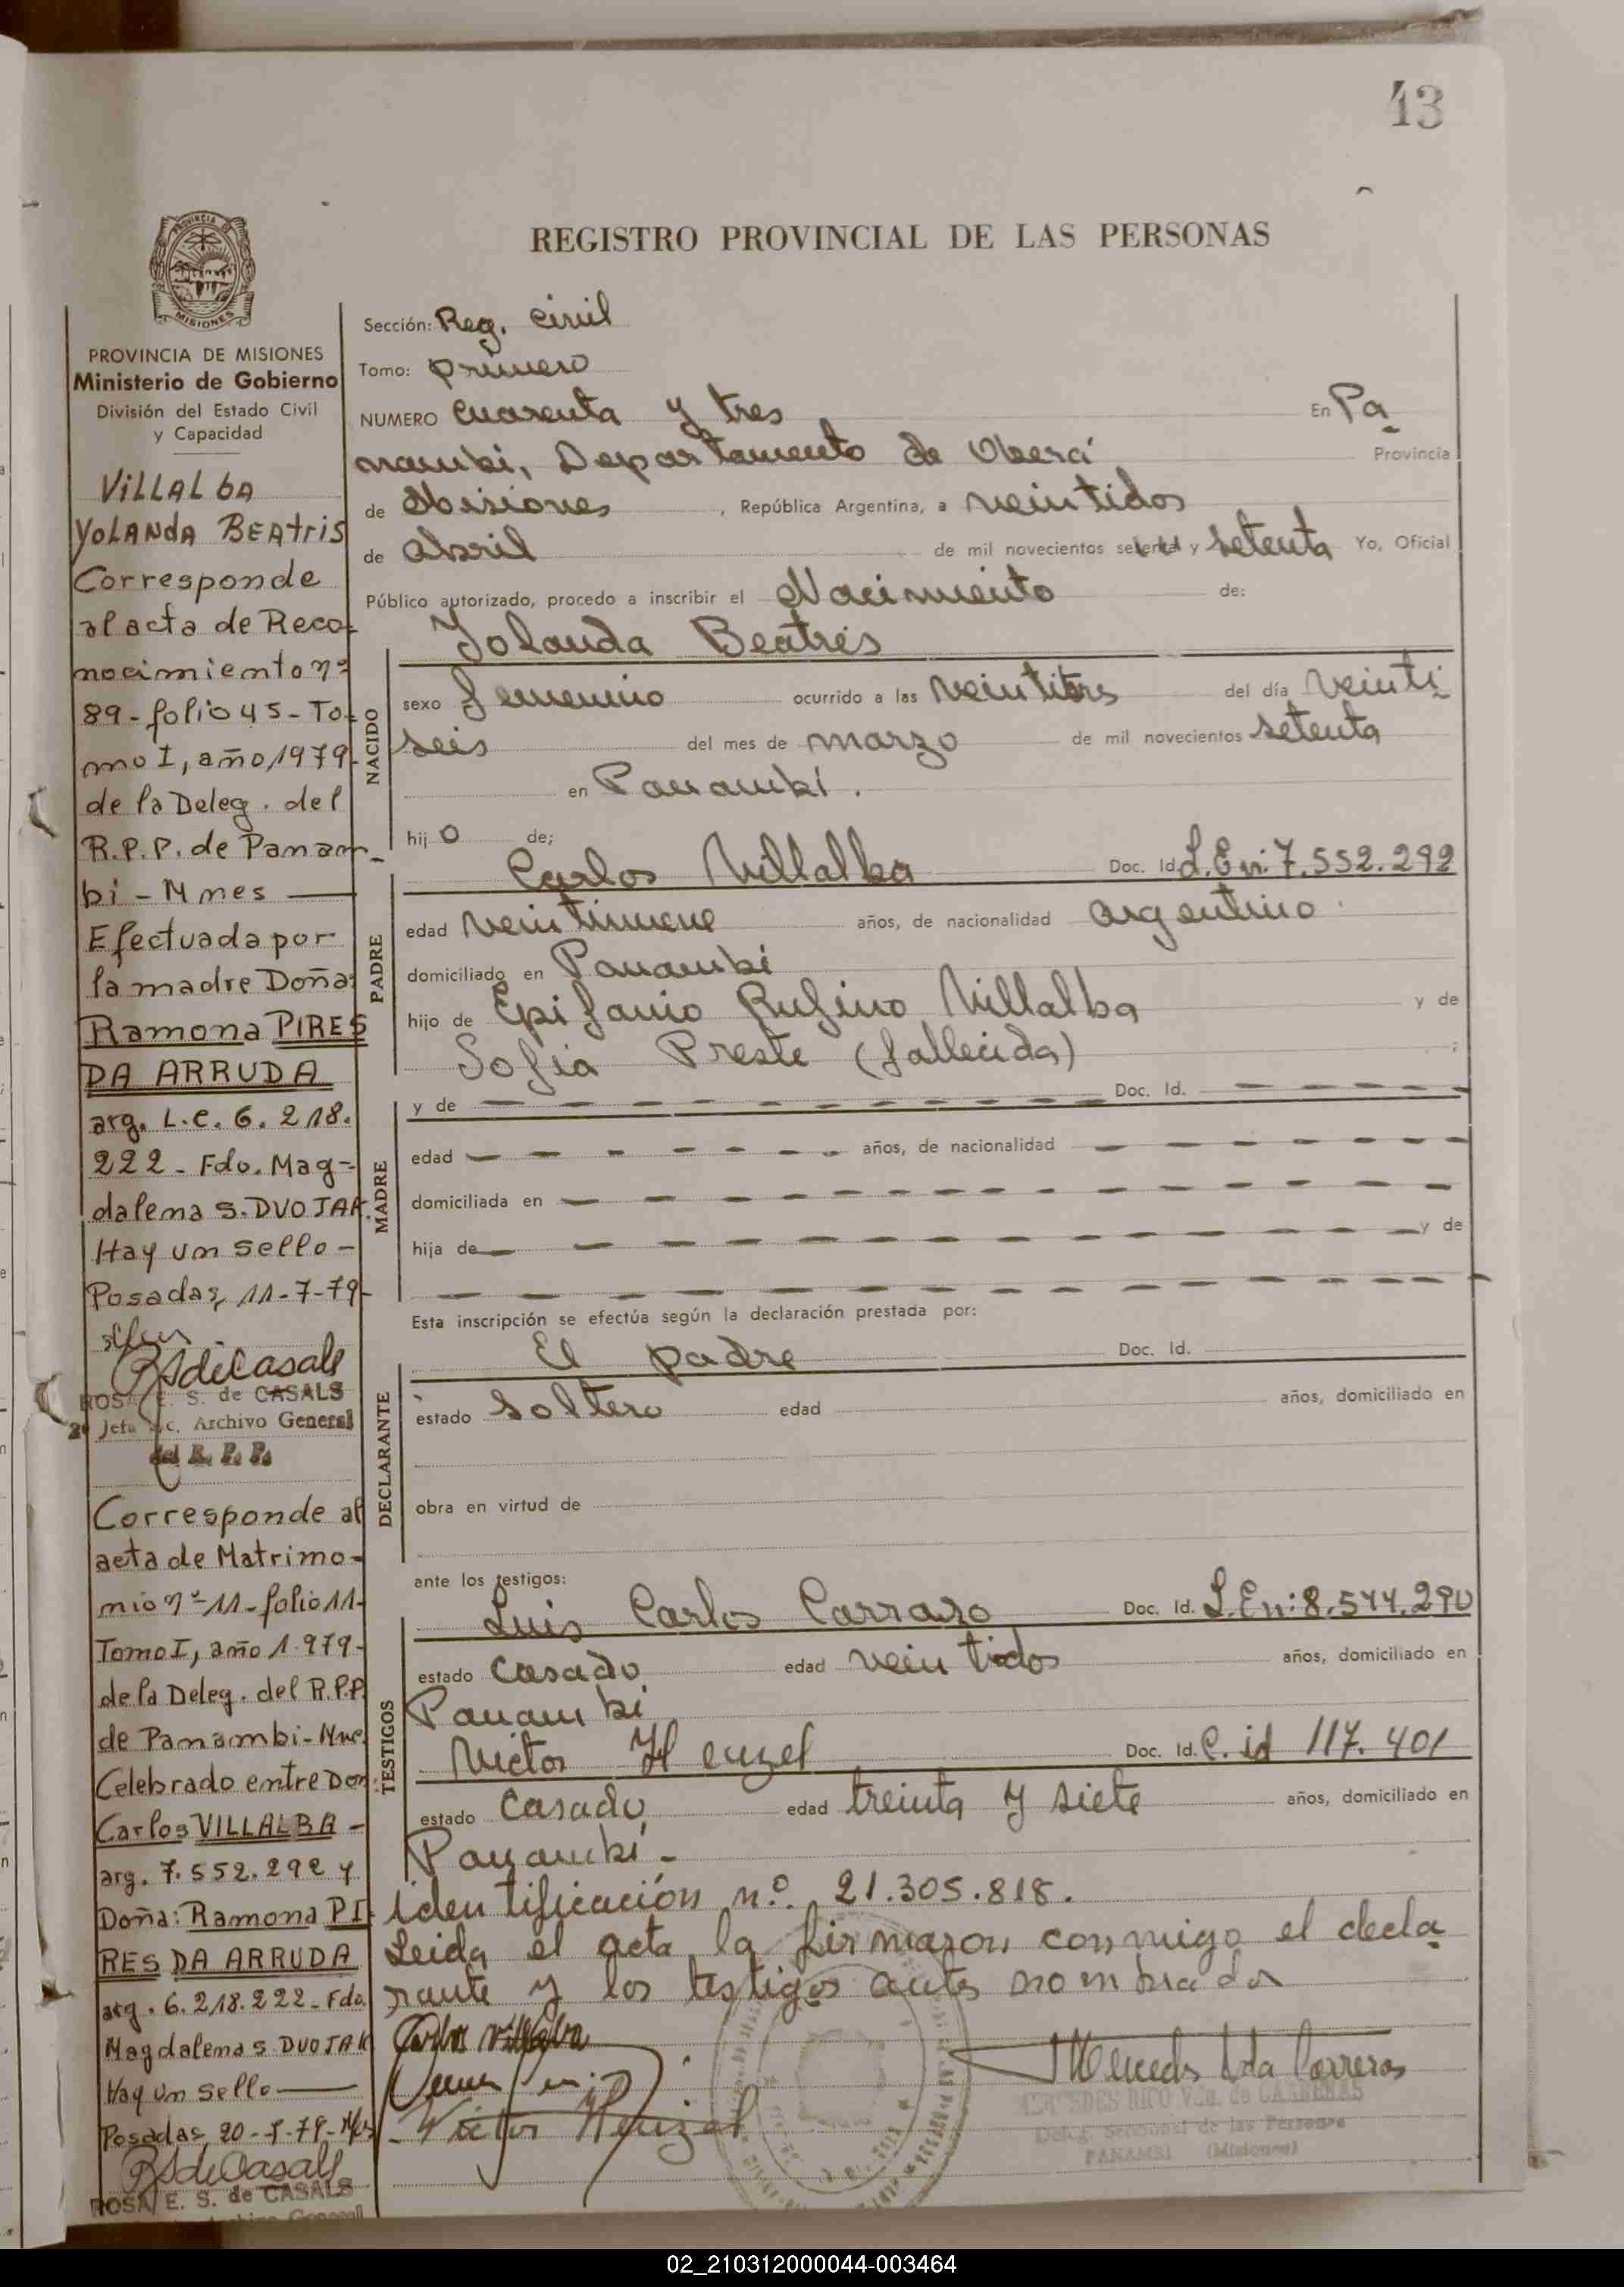 43
REGISTRO PROVINCIAL DE LAS PERSONAS
PROVINCIA
MISIONES
PROVINCIA DE MISIONES
Ministerio de Gobierno
División del Estado Civil
y Capacidad
VILLALBA
YOLANDA BEAtRIS
Corresponde
al acta de Reco-
nocimiento nº
89-folio 45-To-
mo I, año 1979-
de la Deleg. del
R.P.P. de Panam-
bi - Mnes
Efectuada por
la madre Doña:
Ramona PIRES
DA ARRUDA
arg. L.C. 6.218.
222 - Fdo. Mag-
dalena S. DVOJAK.
Hay un sello -
Posadas, 11-7-79-
ROSA E. S. de CASALS
2º Jefa Sc. Archivo General
del R. P. P.
Corresponde al
acta de Matrimo-
nio nº 11-folio 11-
Tomo I, año 1.979-
de la Deleg. del R.P.P.
de Panambi-Mnes
Celebrado entre Don:
Carlos VILLALBA -
arg. 7.552.292 y
Doña: Ramona PI-
RES DA ARRUDA
arg. 6.218.222 - Fdo.
Magdalena S. DVOJAK
Hay un sello
Posadas, 20- -79-
ROSA E. S. de CASALS
Archivo General
Sección: Reg. Civil
Tomo: primero
NUMERO Cuarenta y tres En Pa
nambi, Departamento de Oberá Provincia
de Misiones, República Argentina, a veintidos
de Abril de mil novecientos setenta y setenta Yo, Oficial
Público autorizado, procedo a inscribir el Nacimiento de:
Yolanda Beatris
NACIDO
sexo femenino ocurrido a las veintitres del día veinti
seis del mes de marzo de mil novecientos setenta
en Panambi.
hijo de;
PADRE
Carlos Villalba Doc. Id. L.En: 7.552.292
edad veintinueve años, de nacionalidad argentino
domiciliado en Panambi
hijo de Epifanio Rufino Villalba y de
Sofia Preste (fallecida) ;
MADRE
y de — — — — — — — — — Doc. Id. — — — —
edad — — — — — — — años, de nacionalidad — — — — — —
domiciliada en — — — — — — — — — — — —
hija de — — — — — — — — — — — — y de
— — — — — — — — — — — — — — —
Esta inscripción se efectúa según la declaración prestada por:
DECLARANTE
El padre Doc. Id.
estado soltero edad años, domiciliado en
obra en virtud de
ante los testigos:
TESTIGOS
Luis Carlos Carrazo Doc. Id. L.En: 8.544.290
estado casado edad veintidos años, domiciliado en
Panambi
Victor Henzel Doc. Id. C.id 117.401
estado casado edad treinta y siete años, domiciliado en
Panambi -
identificación n.º 21.305.818.
Leida el acta la firmaron conmigo el decla
rante y los testigos antes nombrados
Carlos Villalba
Victor Henzel
MERCEDES RICO Vda. de CARRERAS
Deleg. Seccional de las Personas
PANAMBI (Misiones)
02_210312000044-003464